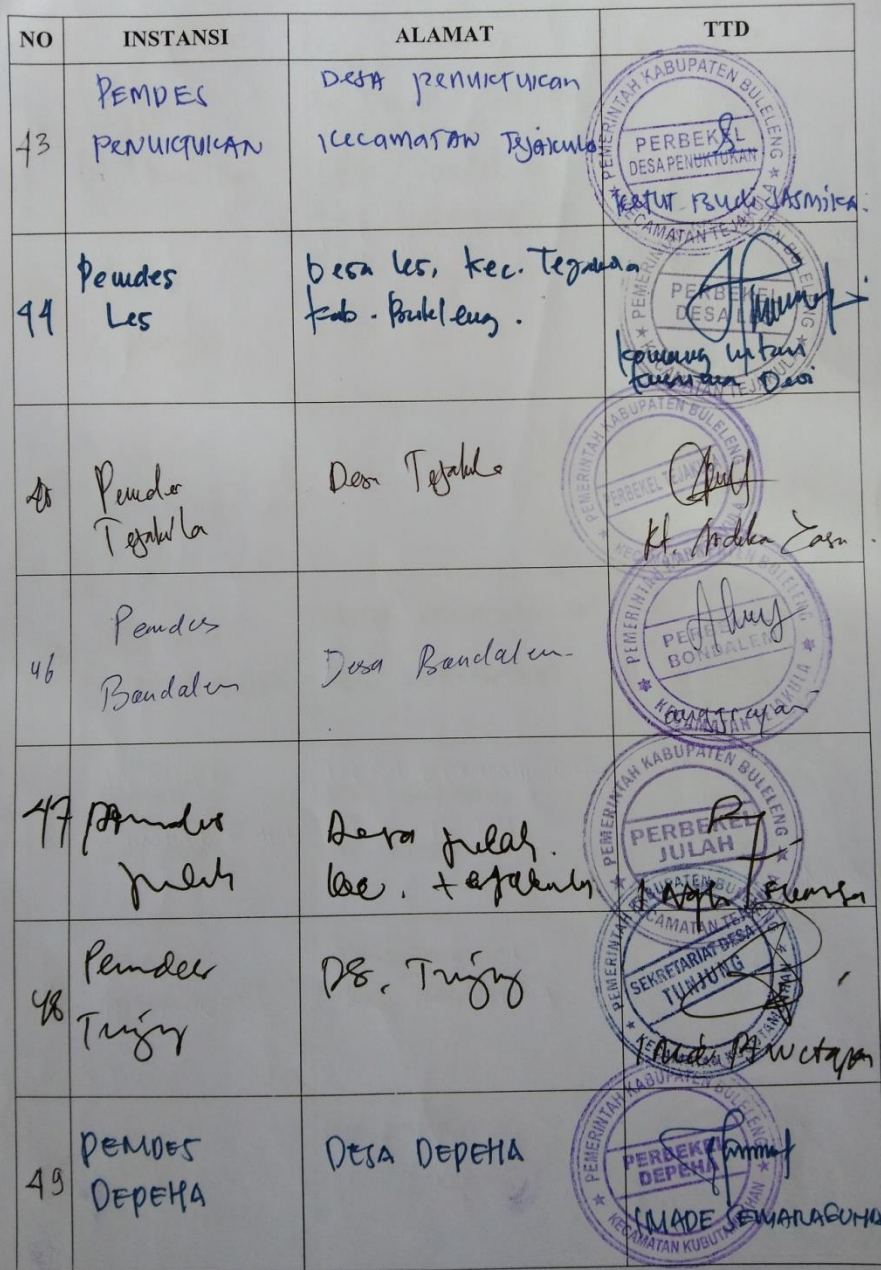 NO INSTANSI ALAMAT TTD
43
PEMDES
PENUKTUKAN
Desa penuktukan
Kecamatan Tejakula
PEMERINTAH KABUPATEN BULELENG
PERBEKEL
DESA PENUKTUKAN
KECAMATAN TEJAKULA
Ketut Budi JASMIKA.
44
Pemdes
Les
Desa Les, Kec. Tejakula
Kab. Buleleng.
PEMERINTAH BULELENG
PERBEKEL
DESA LES
KECAMATAN TEJAKULA
Komang
Devi
45
Pemdes
Tejakula
Desa Tejakula
PEMERINTAH KABUPATEN BULELENG
PERBEKEL TEJAKULA
KECAMATAN TEJAKULA
Kt. Ardika Yasa
46
Pemdes
Bondalem
Desa Bondalem
PEMERINTAH KABUPATEN BULELENG
PERBEKEL
BONDALEM
KECAMATAN TEJAKULA
47
Pemdes
Julah
Desa Julah.
kec. Tejakula
PEMERINTAH KABUPATEN BULELENG
PERBEKEL
JULAH
KECAMATAN TEJAKULA
48
Pemdes
Tunjung
DS. Tunjung
PEMERINTAH KABUPATEN BULELENG
SEKRETARIAT DESA
TUNJUNG
KECAMATAN KUBUTAMBAHAN
49
PEMDES
DEPEHA
DESA DEPEHA
PEMERINTAH KABUPATEN BULELENG
PERBEKEL
DEPEHA
KECAMATAN KUBUTAMBAHAN
I MADE SEMARAGUNA